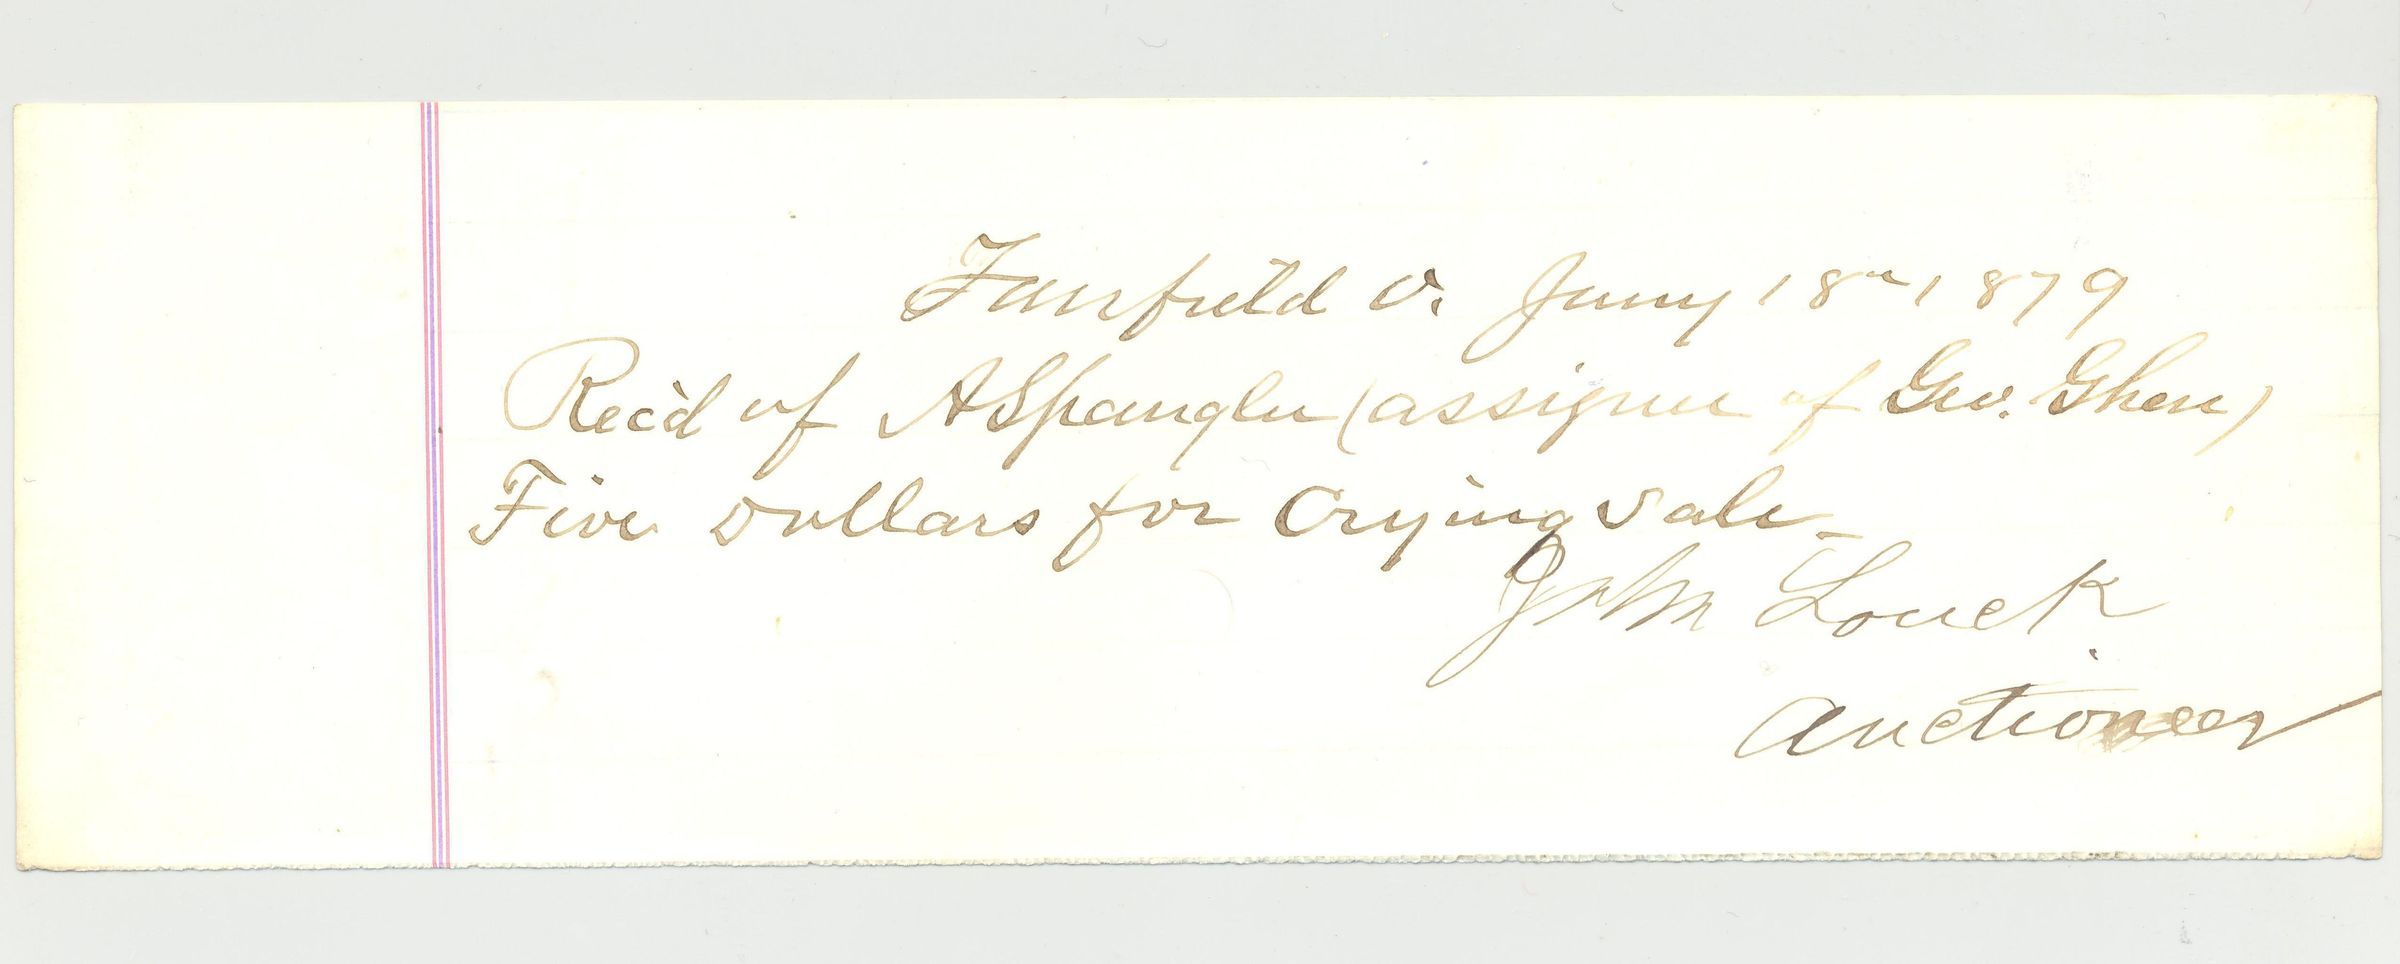 Fairfield O. Jany 18th 1879
Rec'd of A Spangler (assignee of Geo. Ghen)
Five Dollars for Crying Sale
John Louck
Auctioneer